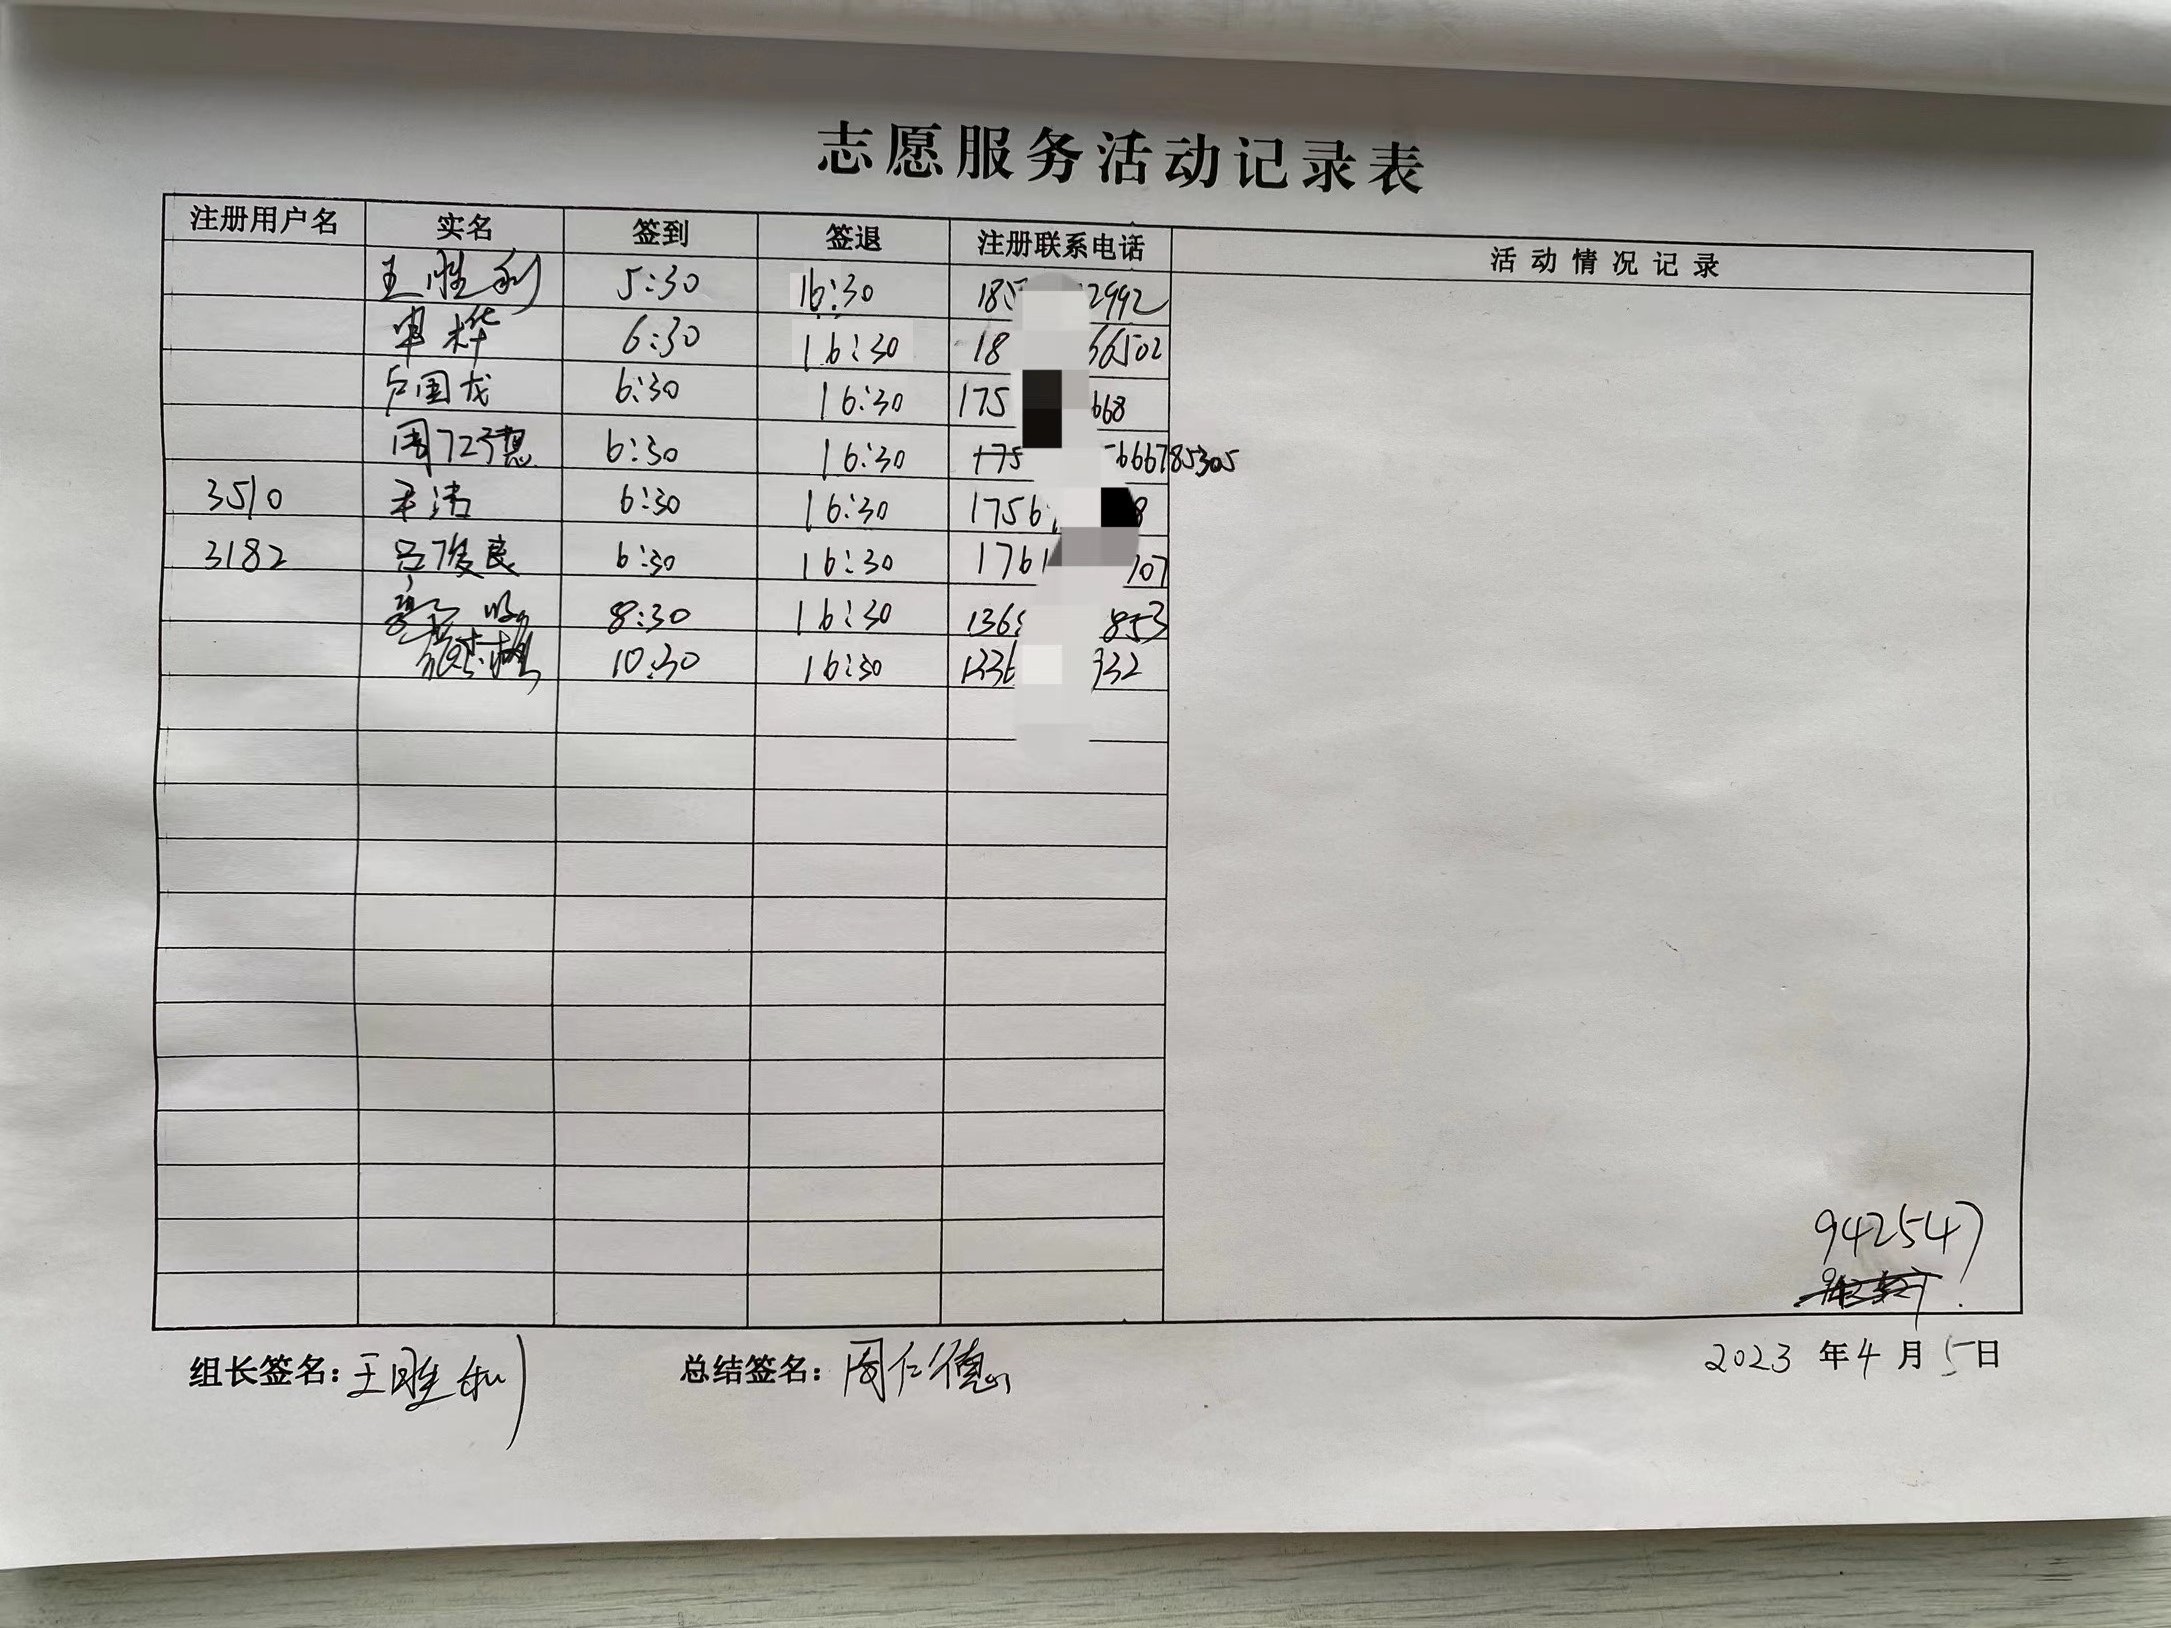 志愿服务活动记录表
注册用户名 实名 签到 签退 注册联系电话 活动情况记录
王胜利 5:30 16:30 185 2992
单桦 6:30 16:30 18 66502
卢国龙 6:30 16:30 175 668
周仁德 6:30 16:30 175 666785305
3510 6:30 16:30 1756 8
3182 吕俊良 6:30 16:30 1761 107
8:30 16:30 136 853
10:30 16:30 1336 932
942547
组长签名：王胜利 总结签名：周仁德 2023年4月5日